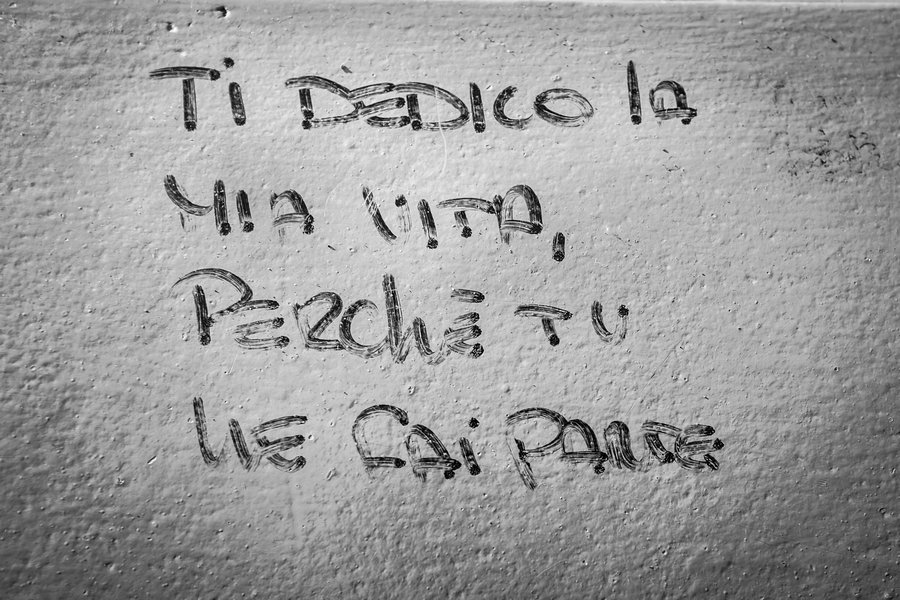 Ti DEDICO la
MIA VITA,
PERCHÉ TU
NE FAI PARTE